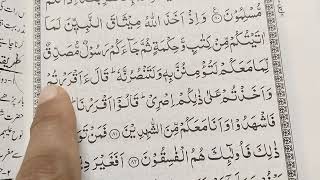 مُّسْلِمُوْنَ ﴿۸۰﴾ وَاِذْ اَخَذَ اللّٰهُ مِيْثَاقَ النَّبِيّٖنَ لَمَاۤ
اٰتَيْتُكُمْ مِّنْ كِتٰبٍ وَّحِكْمَةٍ ثُمَّ جَآءَكُمْ رَسُوْلٌ مُّصَدِّقٌ
لِّمَا مَعَكُمْ لَتُؤْمِنُنَّ بِهٖ وَلَتَنْصُرُنَّهٗ ؕ قَالَ ءَاَقْرَرْتُمْ
وَاَخَذْتُمْ عَلٰى ذٰلِكُمْ اِصْرِيْ ؕ قَالُوْۤا اَقْرَرْنَا ؕ قَالَ
فَاشْهَدُوْا وَاَنَا مَعَكُمْ مِّنَ الشّٰهِدِيْنَ ﴿۸۱﴾ فَمَنْ
ذٰلِكَ فَاُولٰٓئِكَ هُمُ الْفٰسِقُوْنَ ﴿۸۲﴾ اَفَغَيْرَ